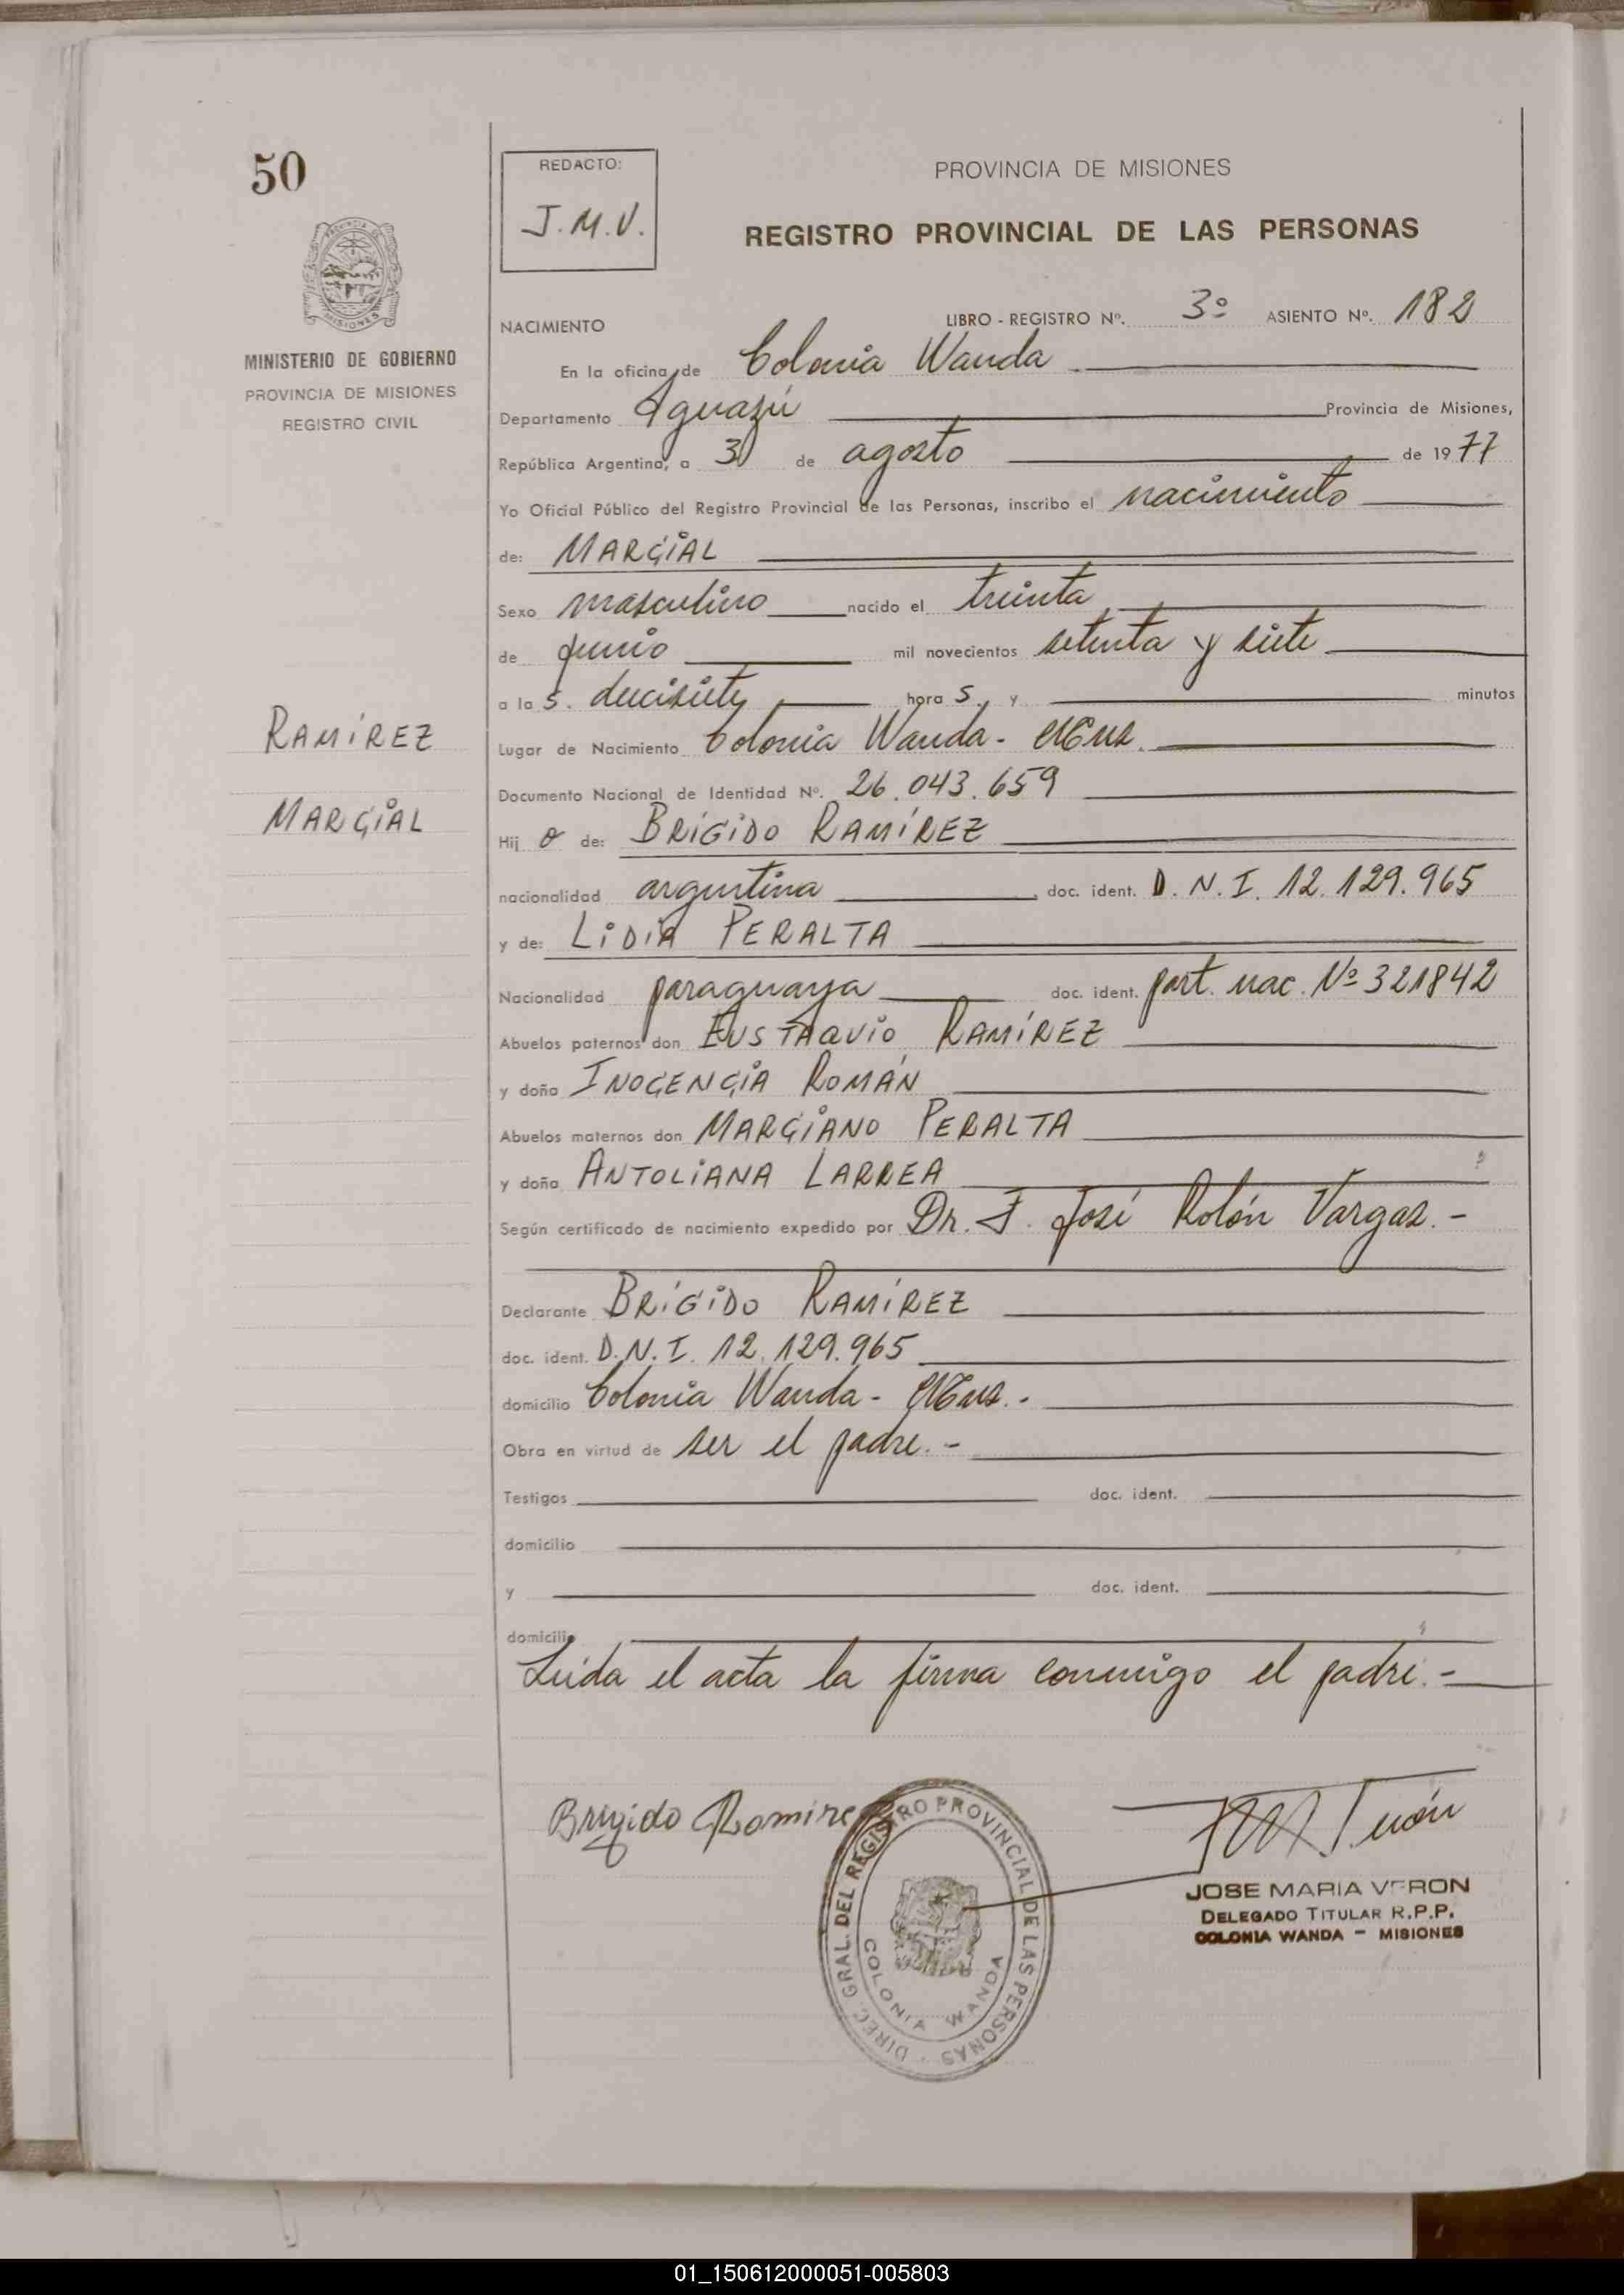 50
REDACTO:
J.M.V.
PROVINCIA DE MISIONES
REGISTRO PROVINCIAL DE LAS PERSONAS
MISIONES
MINISTERIO DE GOBIERNO
PROVINCIA DE MISIONES
REGISTRO CIVIL
NACIMIENTO
LIBRO - REGISTRO Nº. 3º ASIENTO Nº. 182
En la oficina de Colonia Wanda
Departamento Iguazú Provincia de Misiones,
República Argentina, a 3 de agosto de 1977
Yo Oficial Público del Registro Provincial de las Personas, inscribo el nacimiento
de: MARCIAL
Sexo masculino nacido el treinta
de junio mil novecientos setenta y siete
a las. diecisiete horas y minutos
RAMÍREZ
Lugar de Nacimiento Colonia Wanda - Mnes.
Documento Nacional de Identidad Nº. 26.043.659
MARCIAL
Hijo de: BRÍGIDO RAMÍREZ
nacionalidad argentina doc. ident. D.N.I. 12.129.965
y de: LIDIA PERALTA
Nacionalidad paraguaya doc. ident. part. nac. Nº 321842
Abuelos paternos don EUSTAQUIO RAMÍREZ
y doña INOCENCIA ROMÁN
Abuelos maternos don MARCIANO PERALTA
y doña ANTOLIANA LARREA
Según certificado de nacimiento expedido por Dr. F. José Rolón Vargas. -
Declarante BRÍGIDO RAMÍREZ
doc. ident. D.N.I. 12.129.965
domicilio Colonia Wanda - Mnes. -
Obra en virtud de ser el padre. -
Testigos doc. ident.
domicilio
y doc. ident.
domicilio
Leida el acta la firma conmigo el padre. -
Brigido Romirez
DIREC. GRAL. DEL REGISTRO PROVINCIAL DE LAS PERSONAS
COLONIA WANDA
JOSE MARIA VERON
DELEGADO TITULAR R.P.P.
COLONIA WANDA - MISIONES
01_150612000051-005803